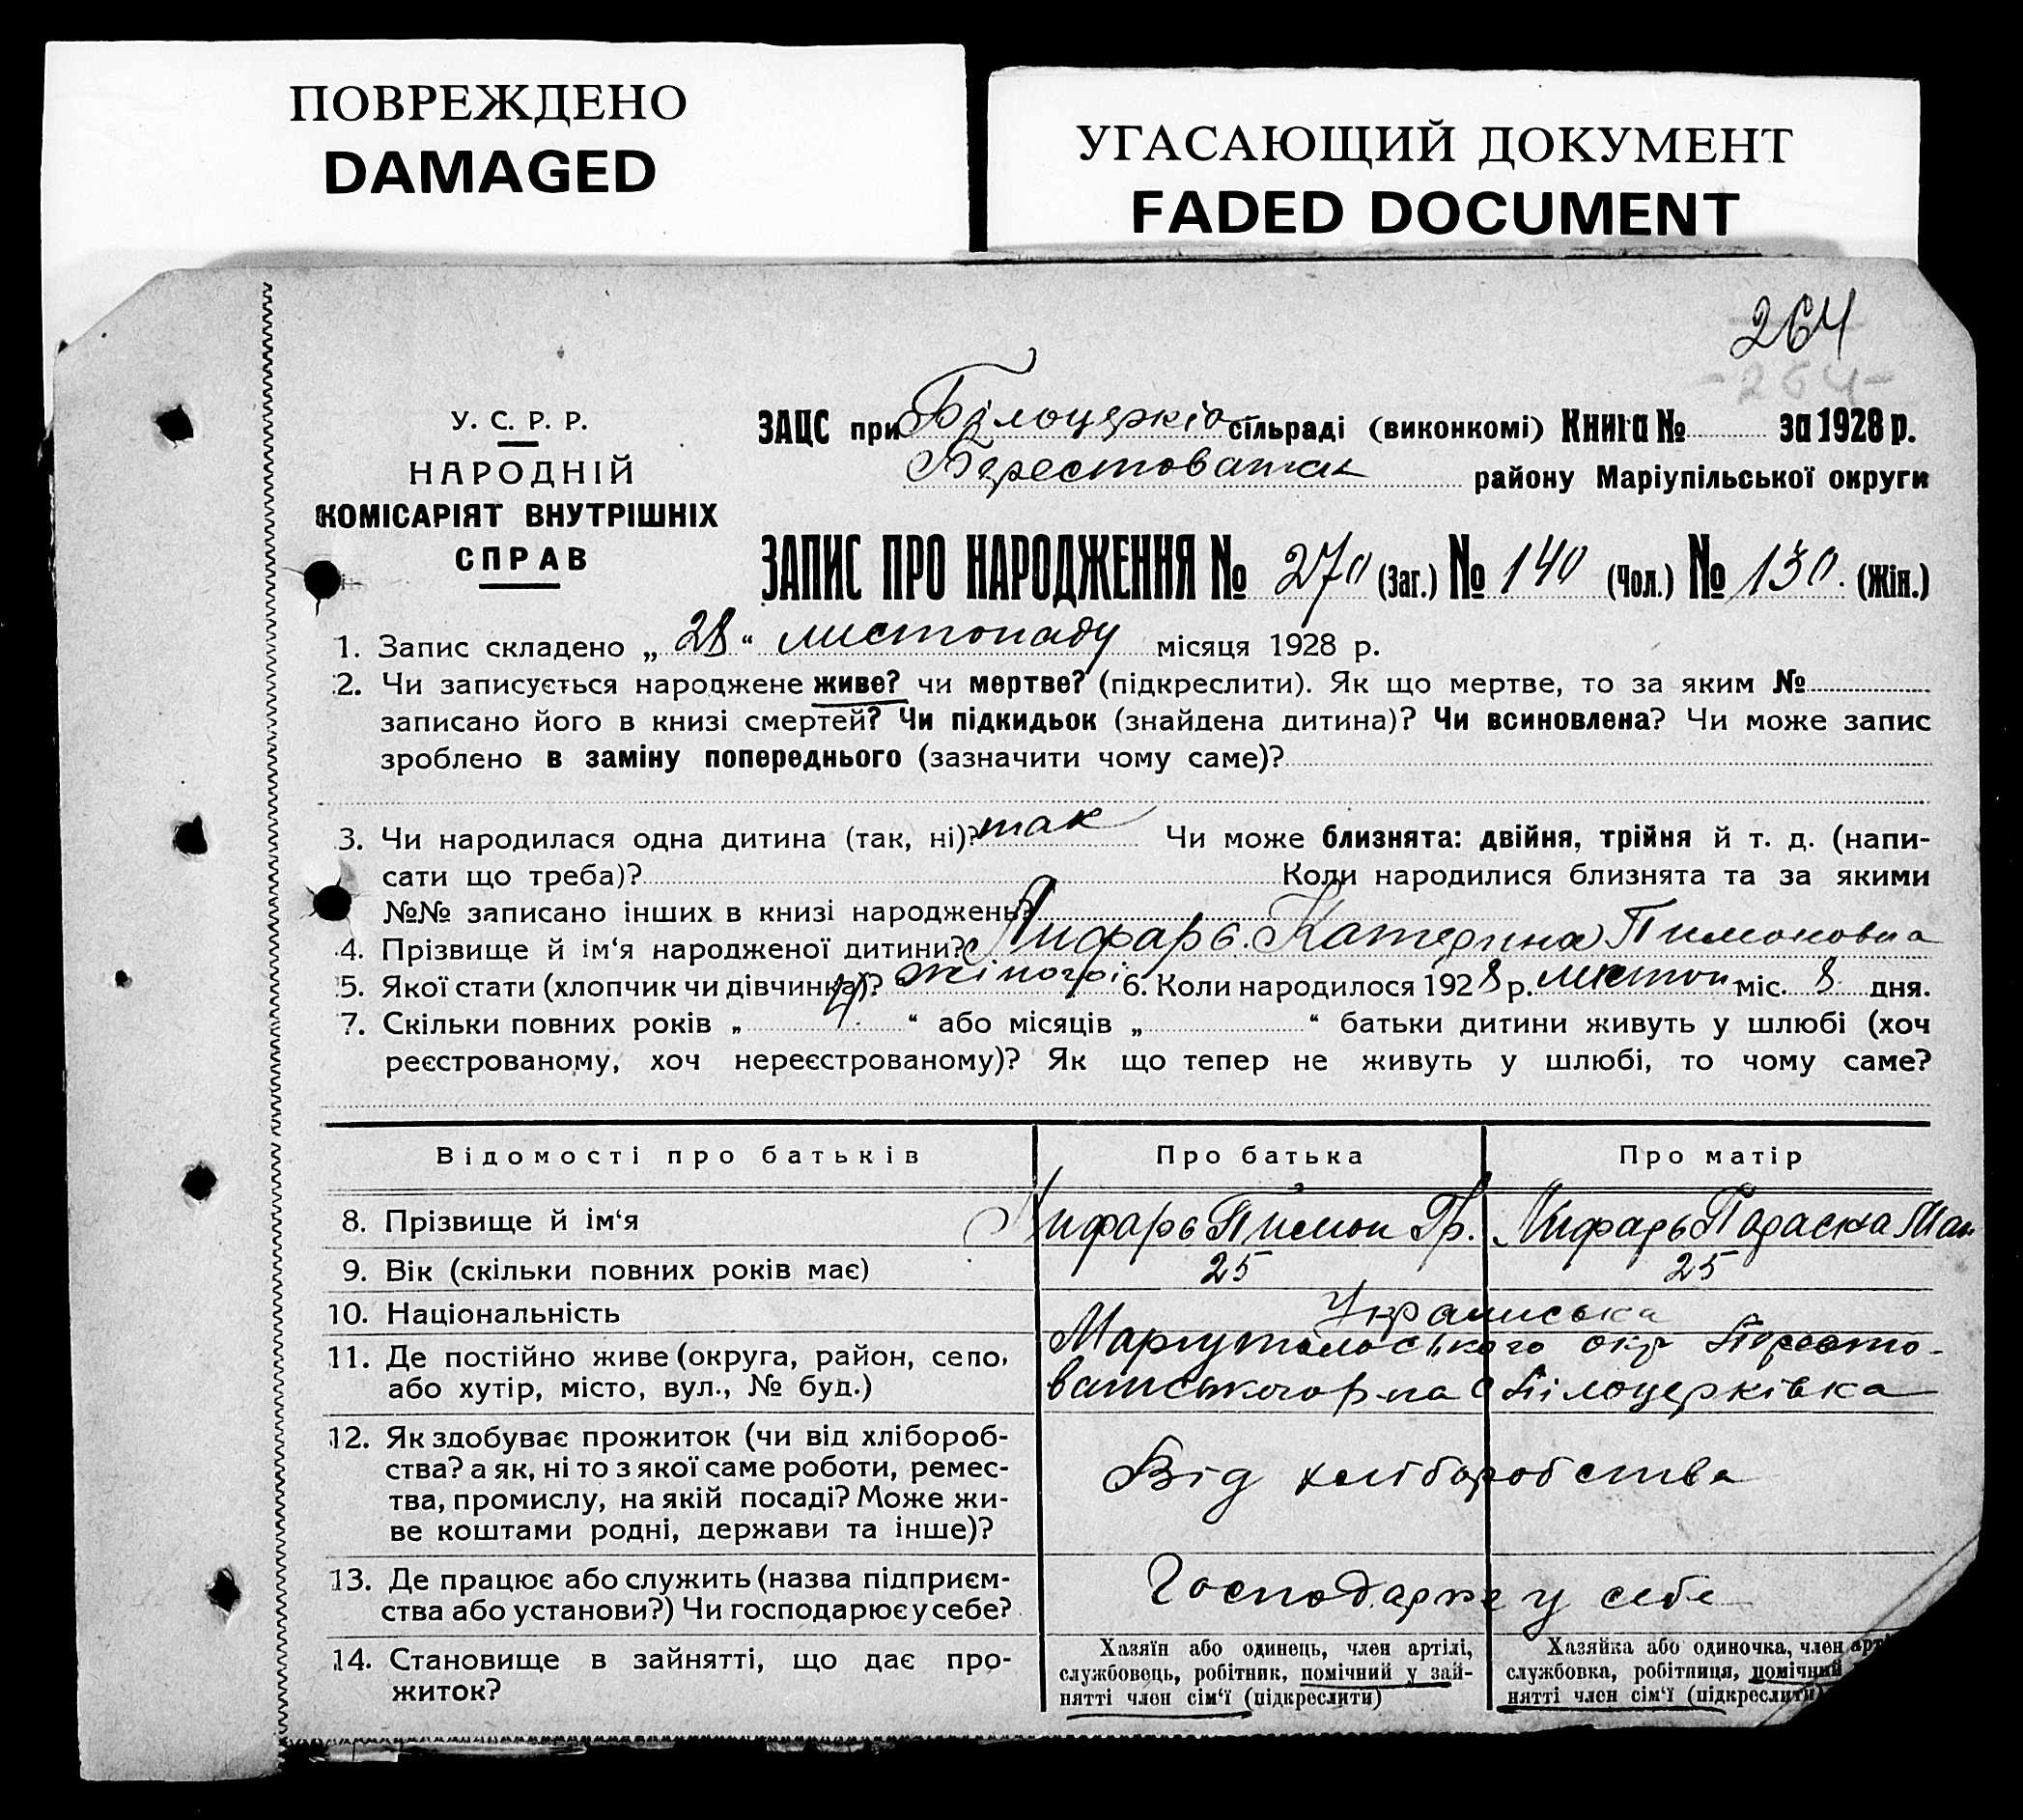 ПОВРЕЖДЕНО
DAMAGED
УГАСАЮЩИЙ ДОКУМЕНТ
FADED DOCUMENT
264
-264-
У. С. Р. Р.
НАРОДНІЙ
КОМІСАРІЯТ ВНУТРІШНІХ
СПРАВ
ЗАЦС при Білоцерків сільраді (виконкомі) Книга № за 1928 р.
району Маріупільської округи
ЗАПИС ПРО НАРОДЖЕННЯ № 270 (Заг.) № 140 (Чол.) № 130. (Жін.)
1. Запис складено „ 28 “ листопаду місяця 1928 р.
2. Чи записується народжене живе? чи мертве? (підкреслити). Як що мертве, то за яким №
записано його в книзі смертей? Чи підкидьок (знайдена дитина)? Чи всиновлена? Чи може запис
зроблено в заміну попереднього (зазначити чому саме)?
3. Чи народилася одна дитина (так, ні)? так Чи може близнята: двійня, трійня й т. д. (напи-
сати що треба)? Коли народилися близнята та за якими
№№ записано інших в книзі народжень?
4. Прізвище й ім‘я народженої дитини? Лифарь Катерина Пимоновна
5. Якої стати (хлопчик чи дівчинка)? жіногоі 6. Коли народилося 1928 р. листоп міс. 8 дня.
7. Скільки повних років „ 4. “ або місяців „ “ батьки дитини живуть у шлюбі (хоч
реєстрованому, хоч нереєстрованому)? Як що тепер не живуть у шлюбі, то чому саме?
Відомості про батьків Про батька Про матір
8. Прізвище й ім‘я Лифарь Пимон Гр. Лифарь Параска
9. Вік (скільки повних років має) 25 25
10. Національність Українська
11. Де постійно живе (округа, район, село, Маріупольського окр Бересто-
або хутір, місто, вул., № буд.) ватського р-на с Білоцерківка
12. Як здобуває прожиток (чи від хлібороб-
ства? а як, ні то з якої саме роботи, ремес- Від хліборобства
тва, промислу, на якій посаді? Може жи-
ве коштами родні, держави та інше)?
13. Де працює або служить (назва підприєм- Господарює у себе
ства або установи?) Чи господарює у себе?
14. Становище в зайнятті, що дає про-
житок?
Хазяїн або одинець, член артілі,
службовець, робітник, помічний у зай-
нятті член сім‘ї (підкреслити)
Хазяйка або одиночка, член арті
службовка, робітниця, помічний
нятті член сім‘ї (підкреслити)